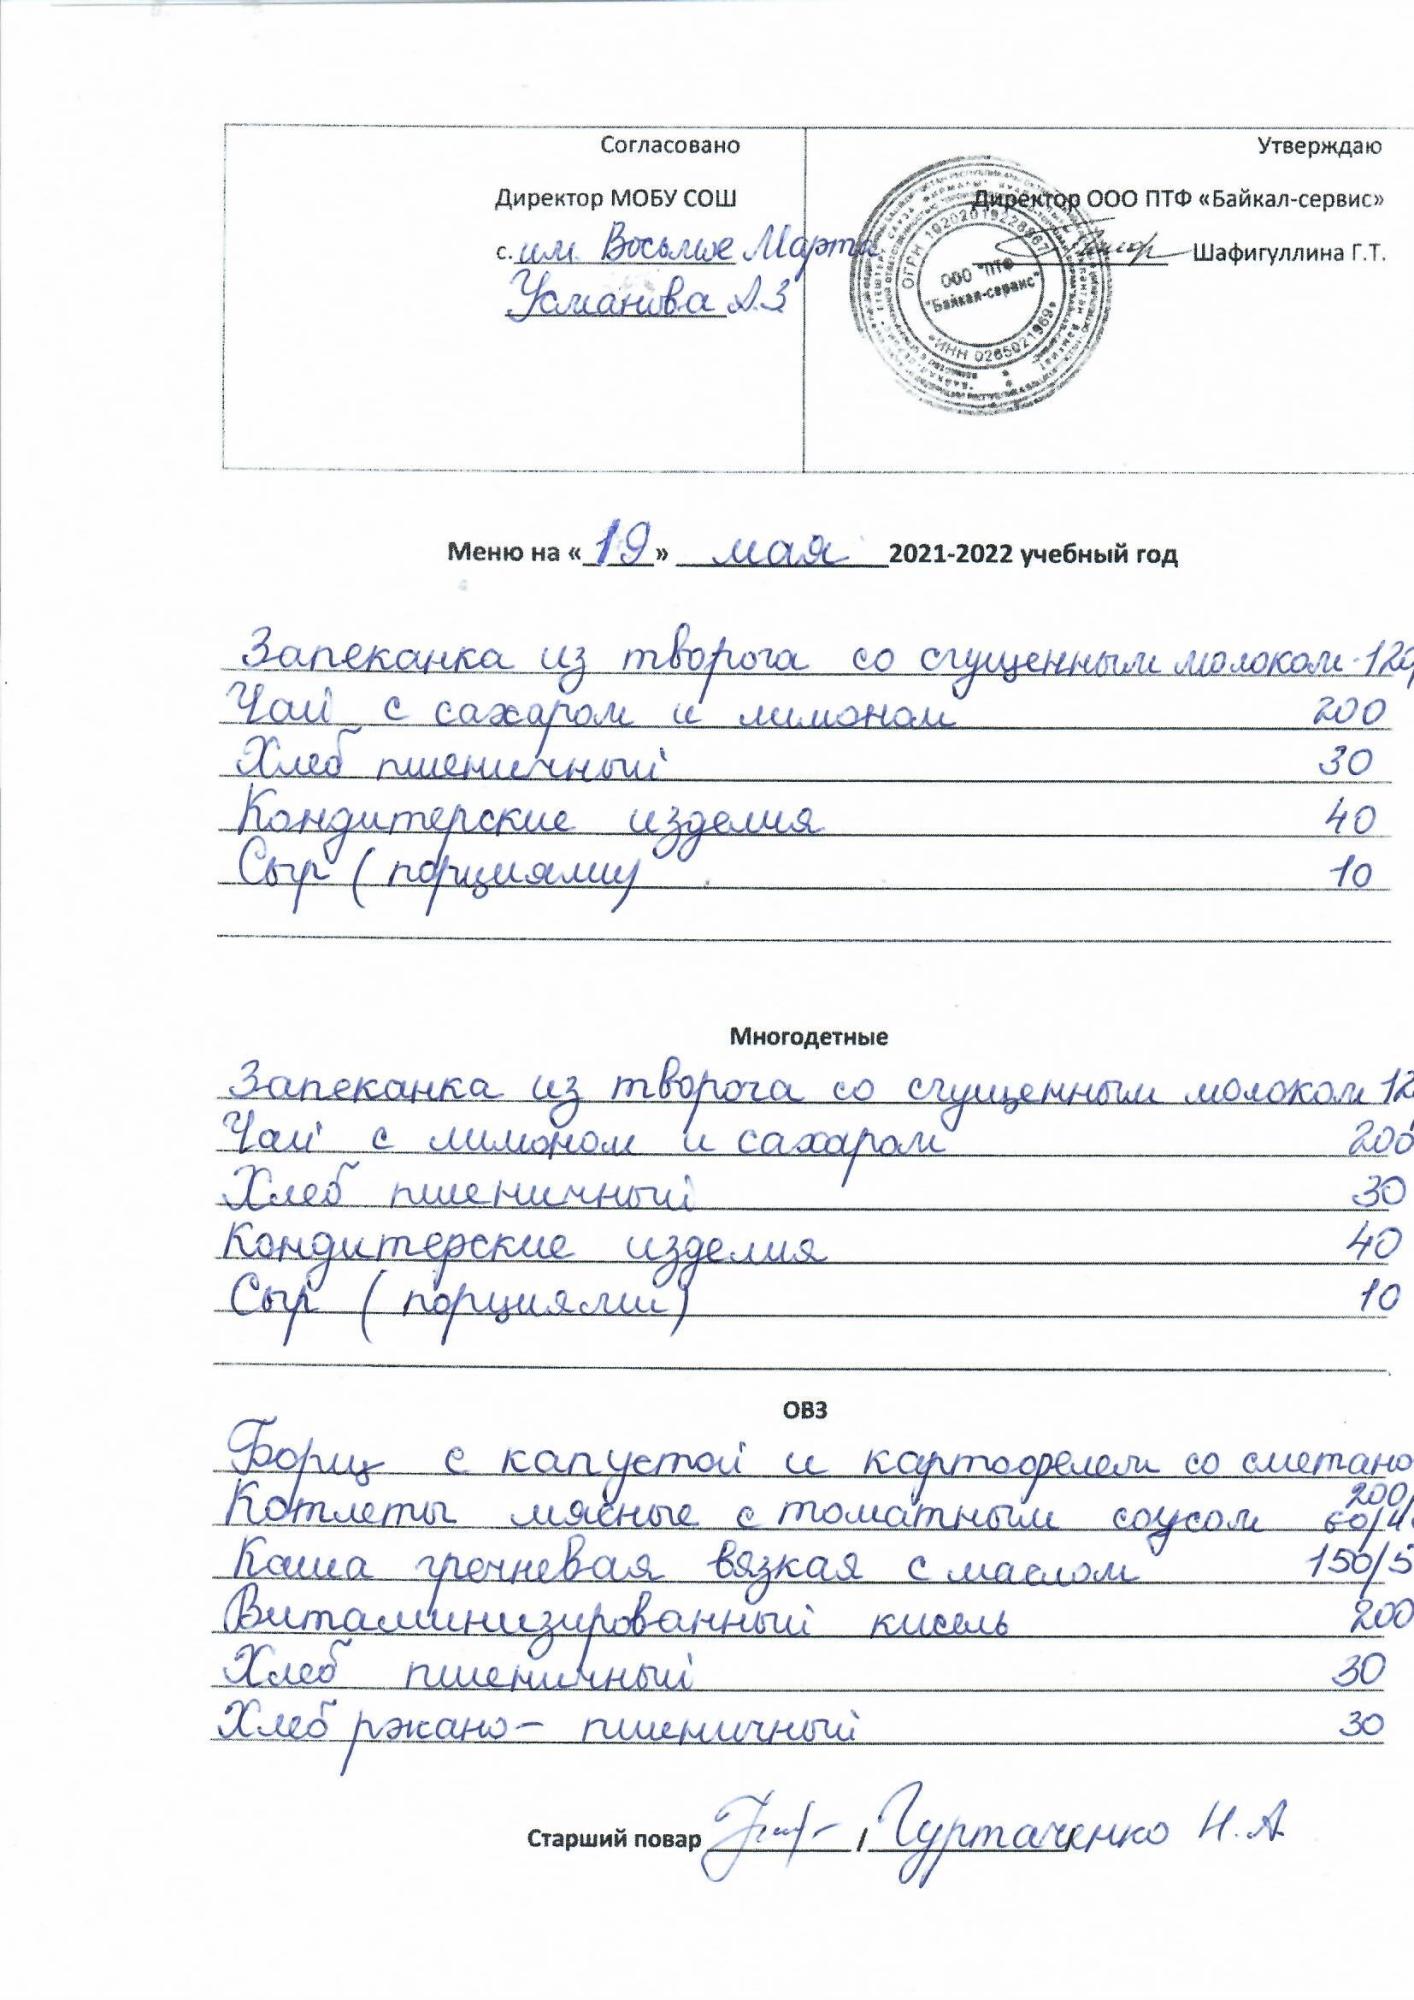 Согласовано
Директор МОБУ СОШ
с. им. Восьмое Марта
Усманова А.З
Утверждаю
Директор ООО ПТФ «Байкал-сервис»
Шафигуллина Г.Т.
ООО "ПТФ
"Байкал-сервис"
ИНН 0265021969
Меню на «19» мая 2021-2022 учебный год
Запеканка из творога со сгущенным молоком - 120
Чай с сахаром и лимоном 200
Хлеб пшеничный 30
Кондитерские изделия 40
Сыр (порциями) 10
Многодетные
Запеканка из творога со сгущенным молоком 12
Чай с лимоном и сахаром 200
Хлеб пшеничный 30
Кондитерские изделия 40
Сыр (порциями) 10
ОВЗ
Борщ с капустой и картофелем со сметано
200/
Котлеты мясные с томатным соусом 60/4
Каша гречневая вязкая с маслом 150/5
Витаминизированный кисель 200
Хлеб пшеничный 30
Хлеб ржано - пшеничный 30
Старший повар / Гуртаченко Н.А